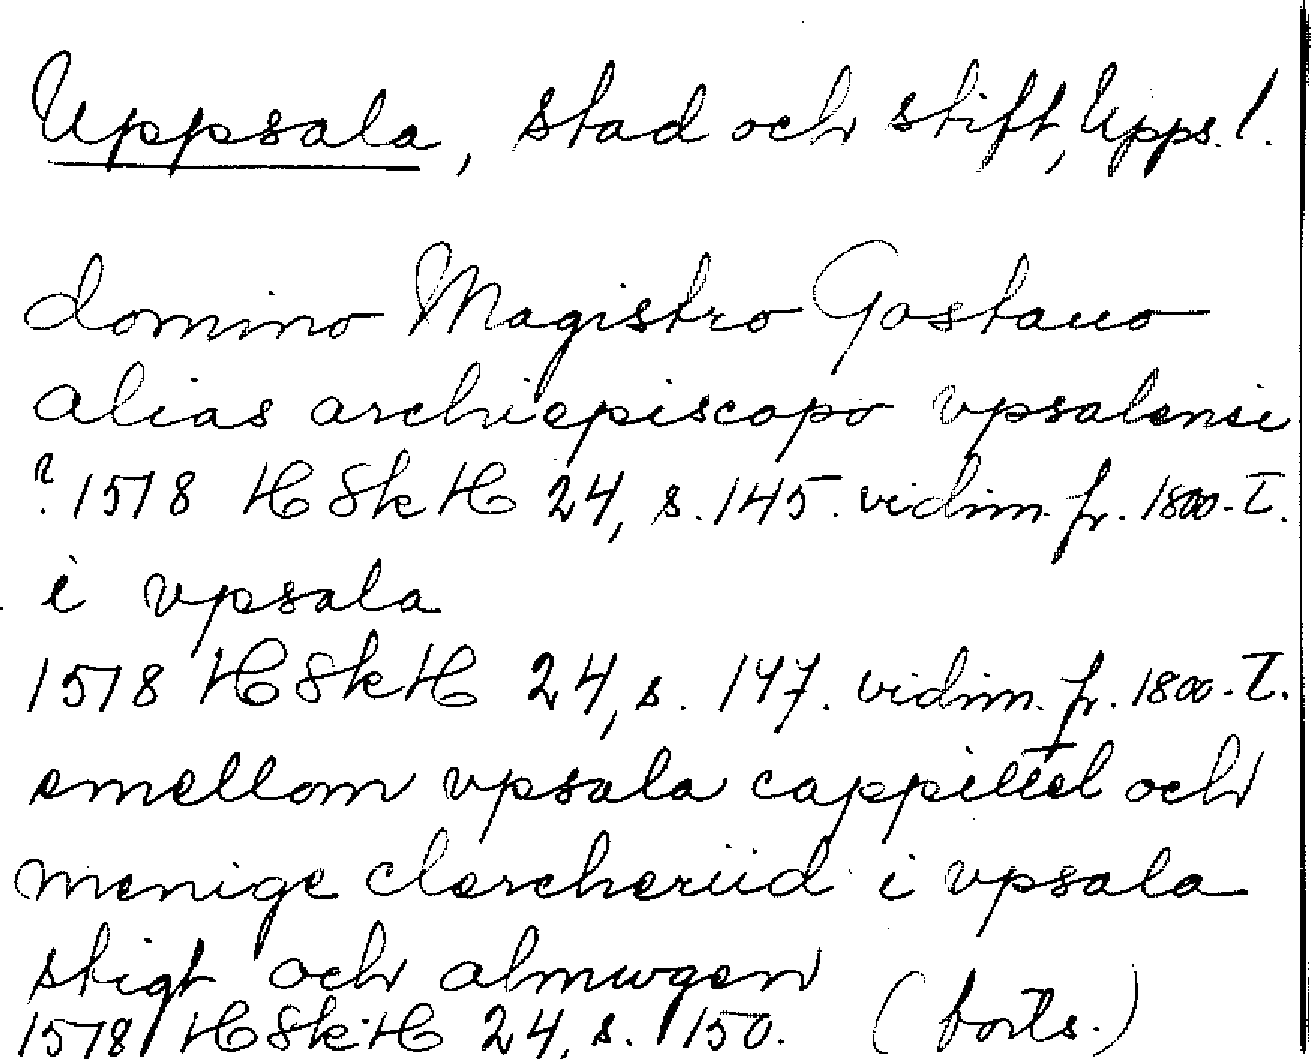 Uppsala, stad och stift, Upps. l.
domino Magistro Gostauo
alias archiepiscopo vpsalensi
? 1518 HSkH 24, s. 145. vidim. fr. 1800-t.
i vpsala
1518 HSkH 24, s. 147. vidim. fr. 1800-t.
emellom vpsala cappittel och
menige clercheriid i vpsala
stigt och almwgen
1518 HSkH 24, s. 150. (forts.)